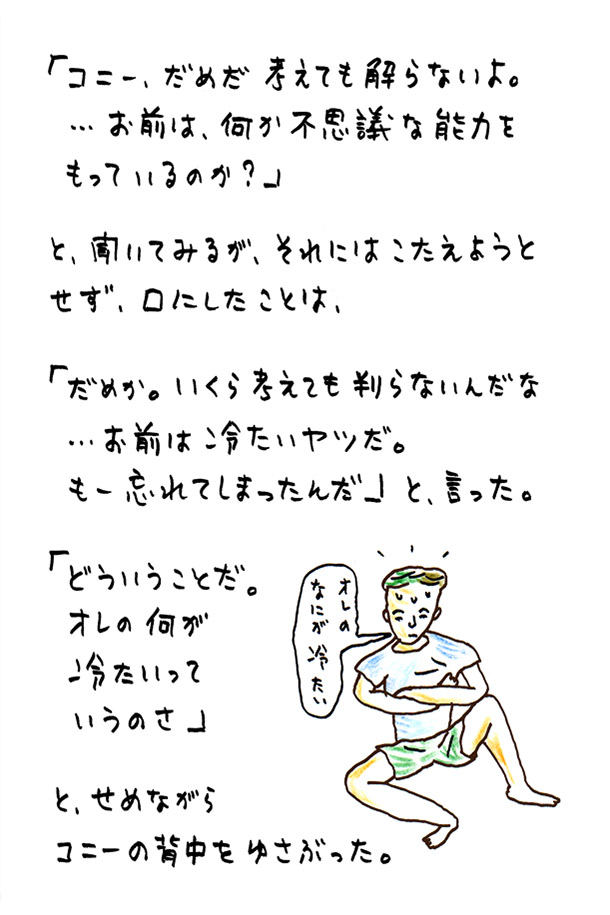 「コニー、だめだ 考えても解らないよ。
…お前は、何か不思議な能力を
もっているのか？」
と、聞いてみるが、それにはこたえようと
せず、口にしたことは、
「だめか。いくら考えても判らないんだな
…お前は冷たいヤツだ。
もー忘れてしまったんだ」と、言った。
「どういうことだ。
オレの何が
冷たいって
いうのさ」
オレの
なにが冷たい
と、せめながら
コニーの背中をゆさぶった。